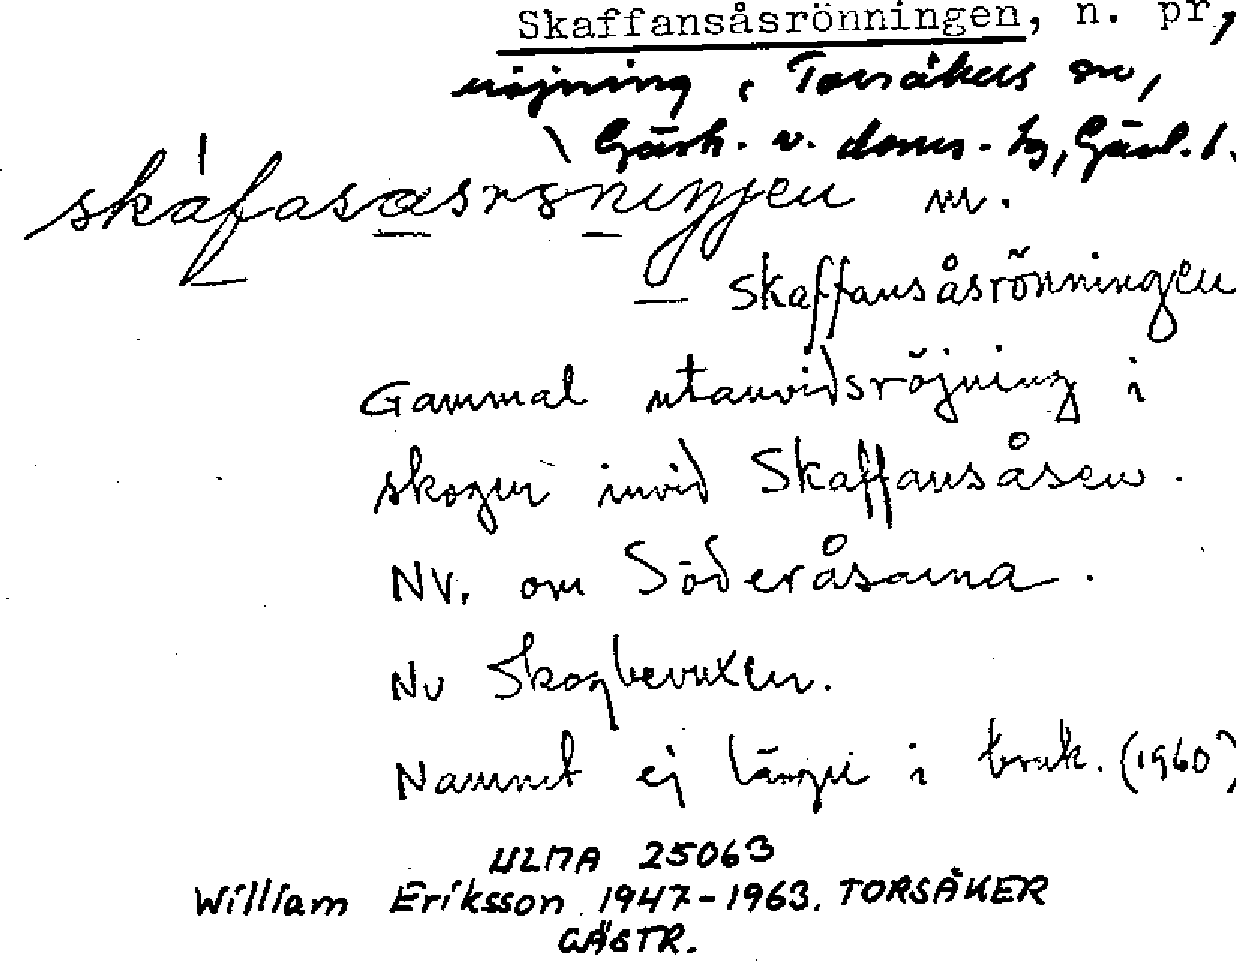 Skaffansåsrönningen, n. pr,
röjning, Torsåkers sn,
Gästr. v. doms. tg, Gävl. l.
m.
Skaffansåsrönningen
Gammal utanvidsröjning i
skogen invid Skaffansåsen.
NV. om Söderåsarna.
Nu Skogbevuxen.
Namnet ej längre i bruk. (1960)
ULMA 25063
William Eriksson 1947-1963. TORSÅKER
GÄSTR.